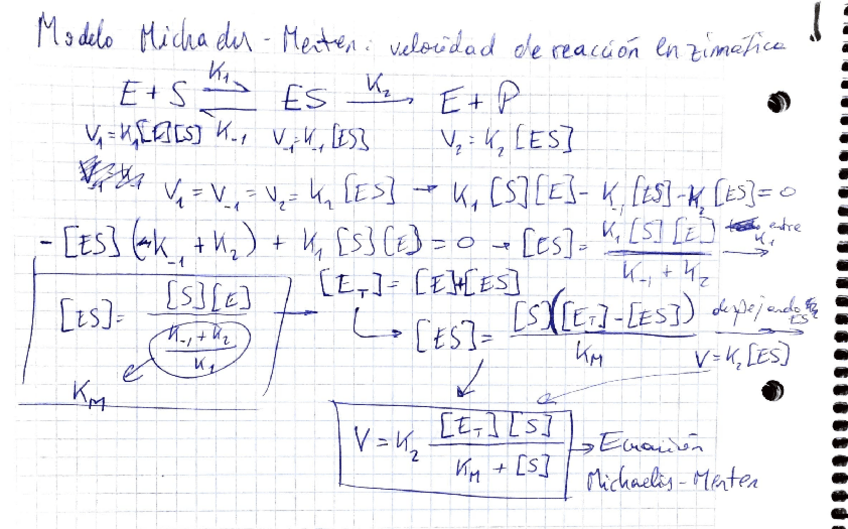 Modelo Michaelis - Menten: velocidad de reacción enzimática
E + S ⇌ ES → E + P
K₁ K₋₁ K₂
V₁=K₁[E][S] V₋₁=K₋₁[ES] V₂=K₂[ES]
V₁ = V₋₁ = V₂ = K₂[ES] → K₁[S][E] - K₋₁[ES] - K₂[ES] = 0
-[ES](K₋₁ + K₂) + K₁[S][E] = 0 → [ES] = K₁[S][E] / K₋₁ + K₂ → entre K₁
[ES] = [S][E] / (K₋₁ + K₂ / K₁) → [E_T] = [E]+[ES]
K_M
↳ [ES] = [S]([E_T] - [ES]) / K_M → despejando ES
V = K₂[ES]
V = K₂ [E_T][S] / K_M + [S] → Ecuación
Michaelis - Menten